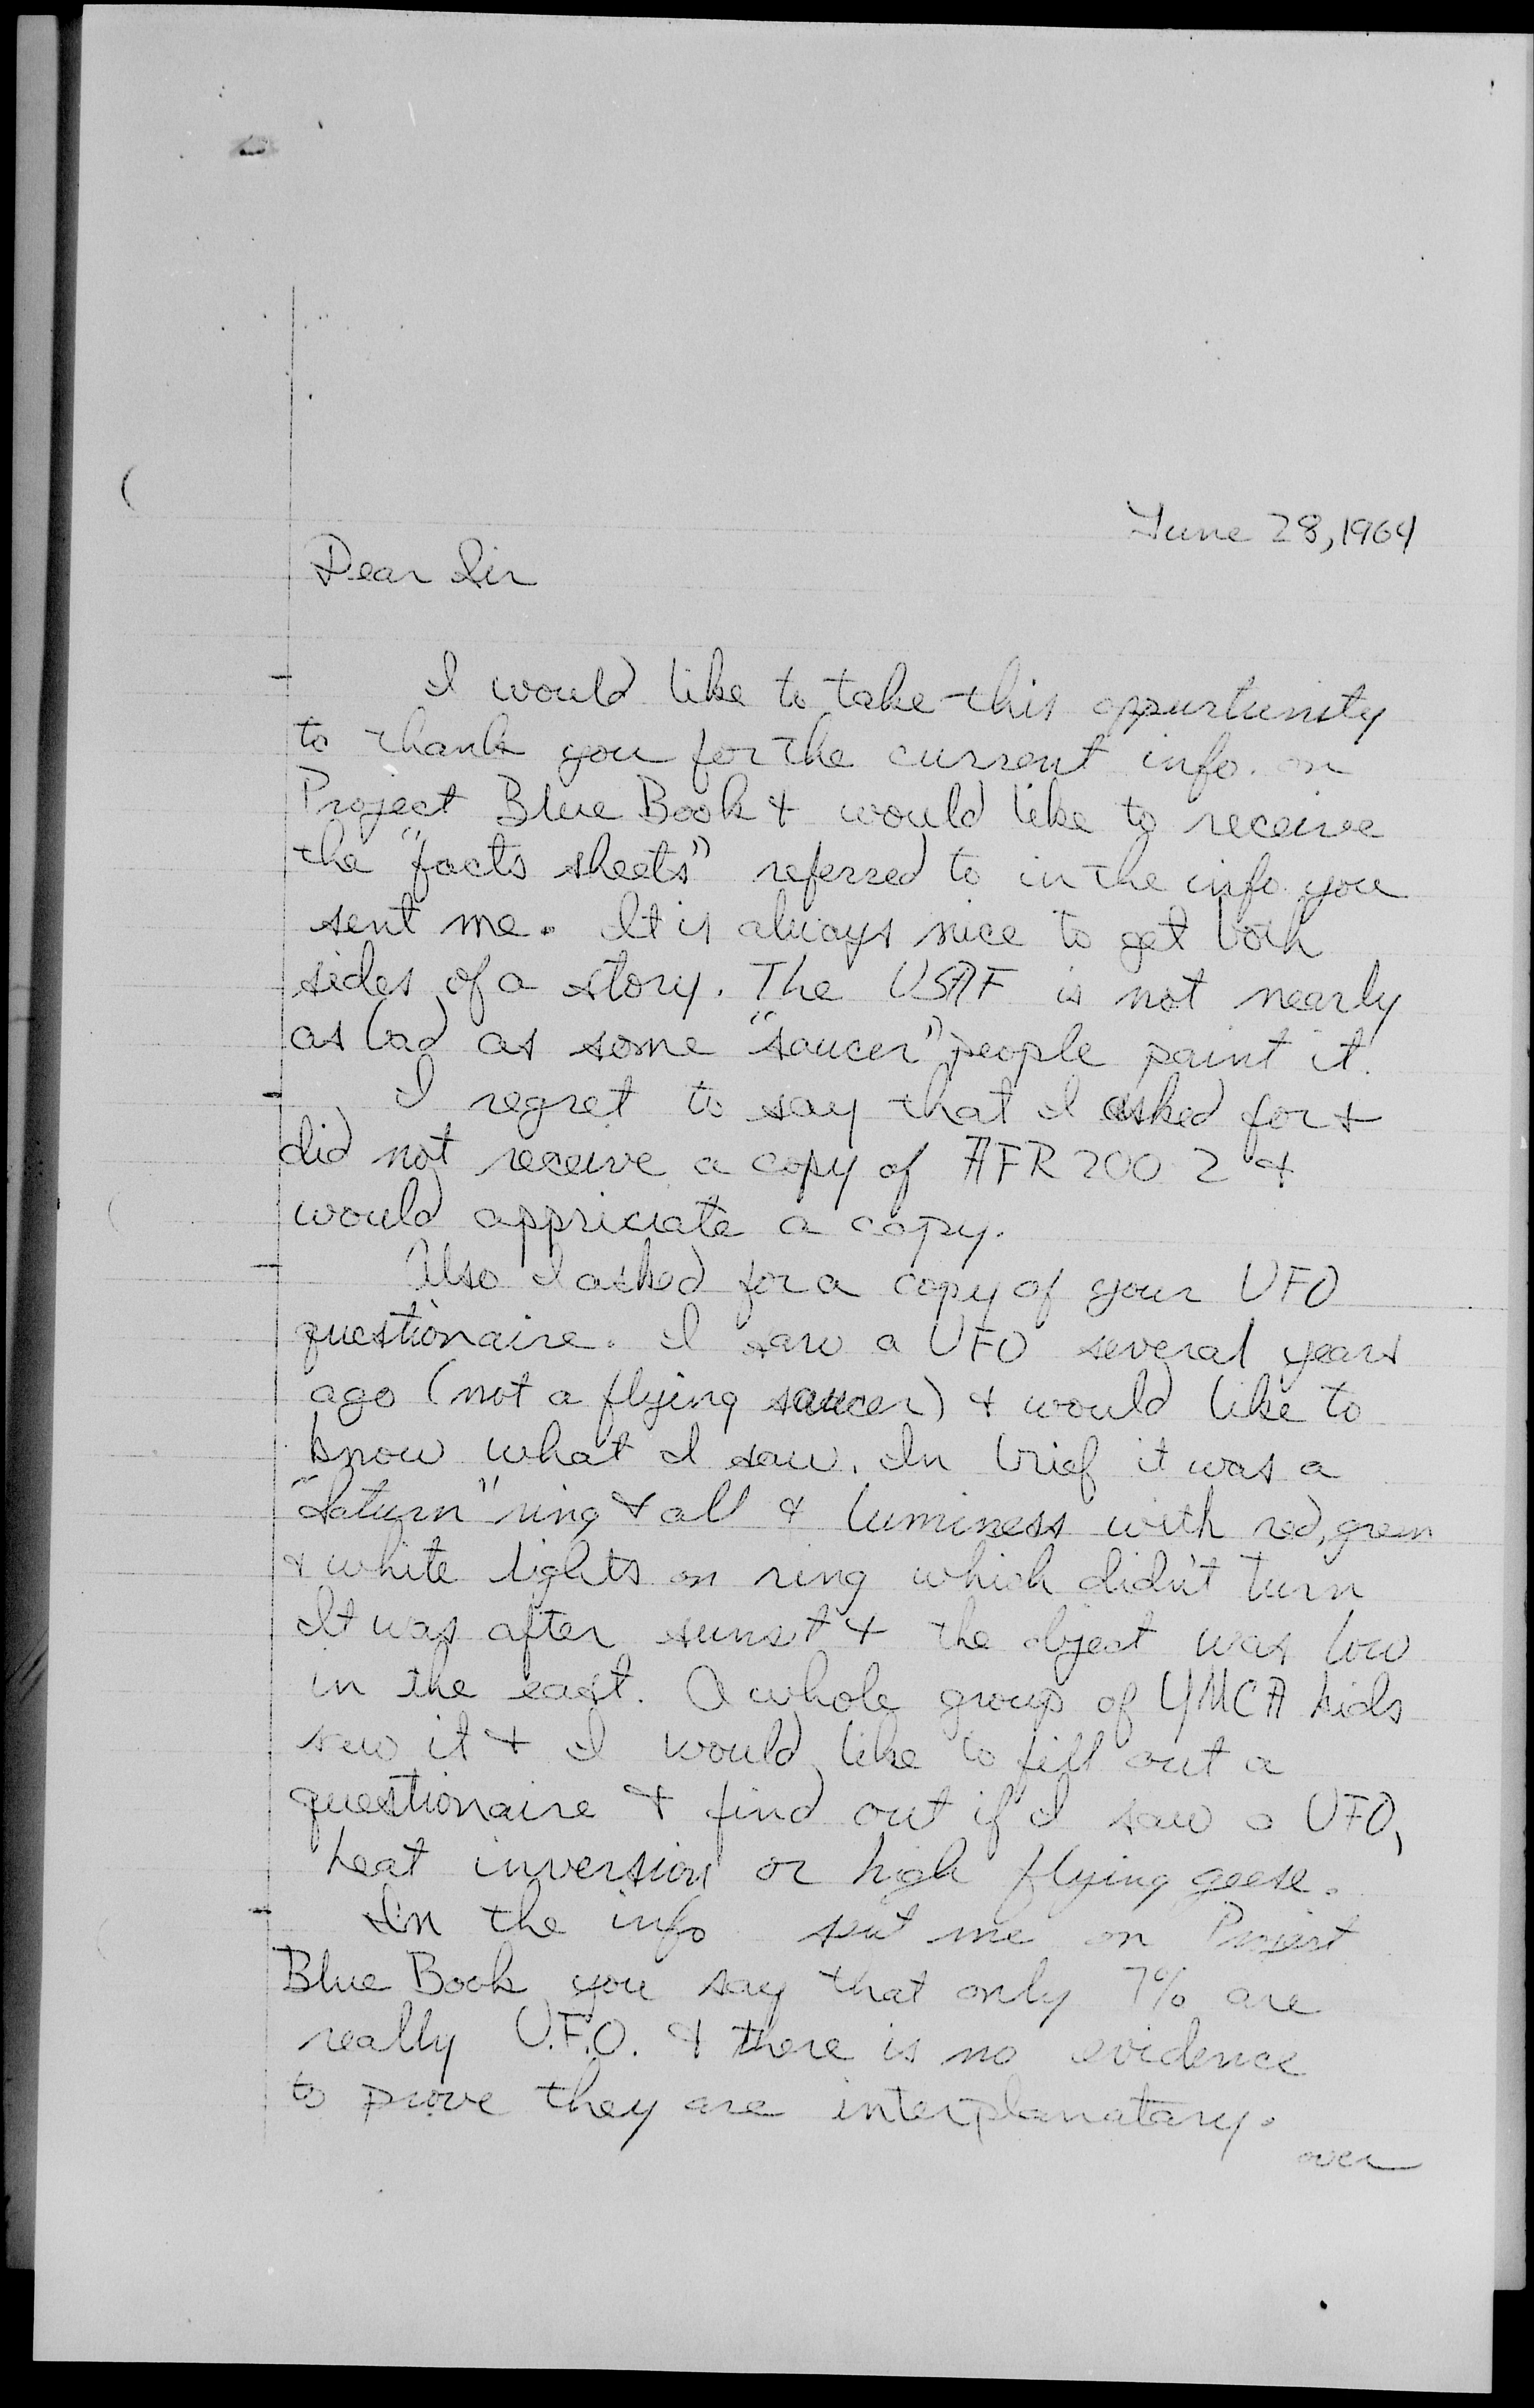 June 28, 1964
Dear Sir
I would like to take this oppurtunity
to thank you for the current info. on
Project Blue Book & would like to receive
the "facts sheets" referred to in the info you
sent me. It is always nice to get both
sides of a story. The USAF is not nearly
as bad as some "saucer" people paint it.
I regret to say that I asked for &
did not receive a copy of AFR 200 2 &
would appriciate a copy.
Also I asked for a copy of your UFO
questionaire. I saw a UFO several years
ago (not a flying saucer) & would like to
know what I saw. In brief it was a
"Saturn" ring & all & luminess with red, green
& white lights on ring which didn't turn
It was after sunset & the object was low
in the east. A whole group of YMCA kids
saw it & I would like to fill out a
questionaire & find out if I saw a UFO,
heat inversion or high flying geese.
In the info sent me on Project
Blue Book you say that only 7% are
really U.F.O. & there is no evidence
to prove they are interplanatary.
over